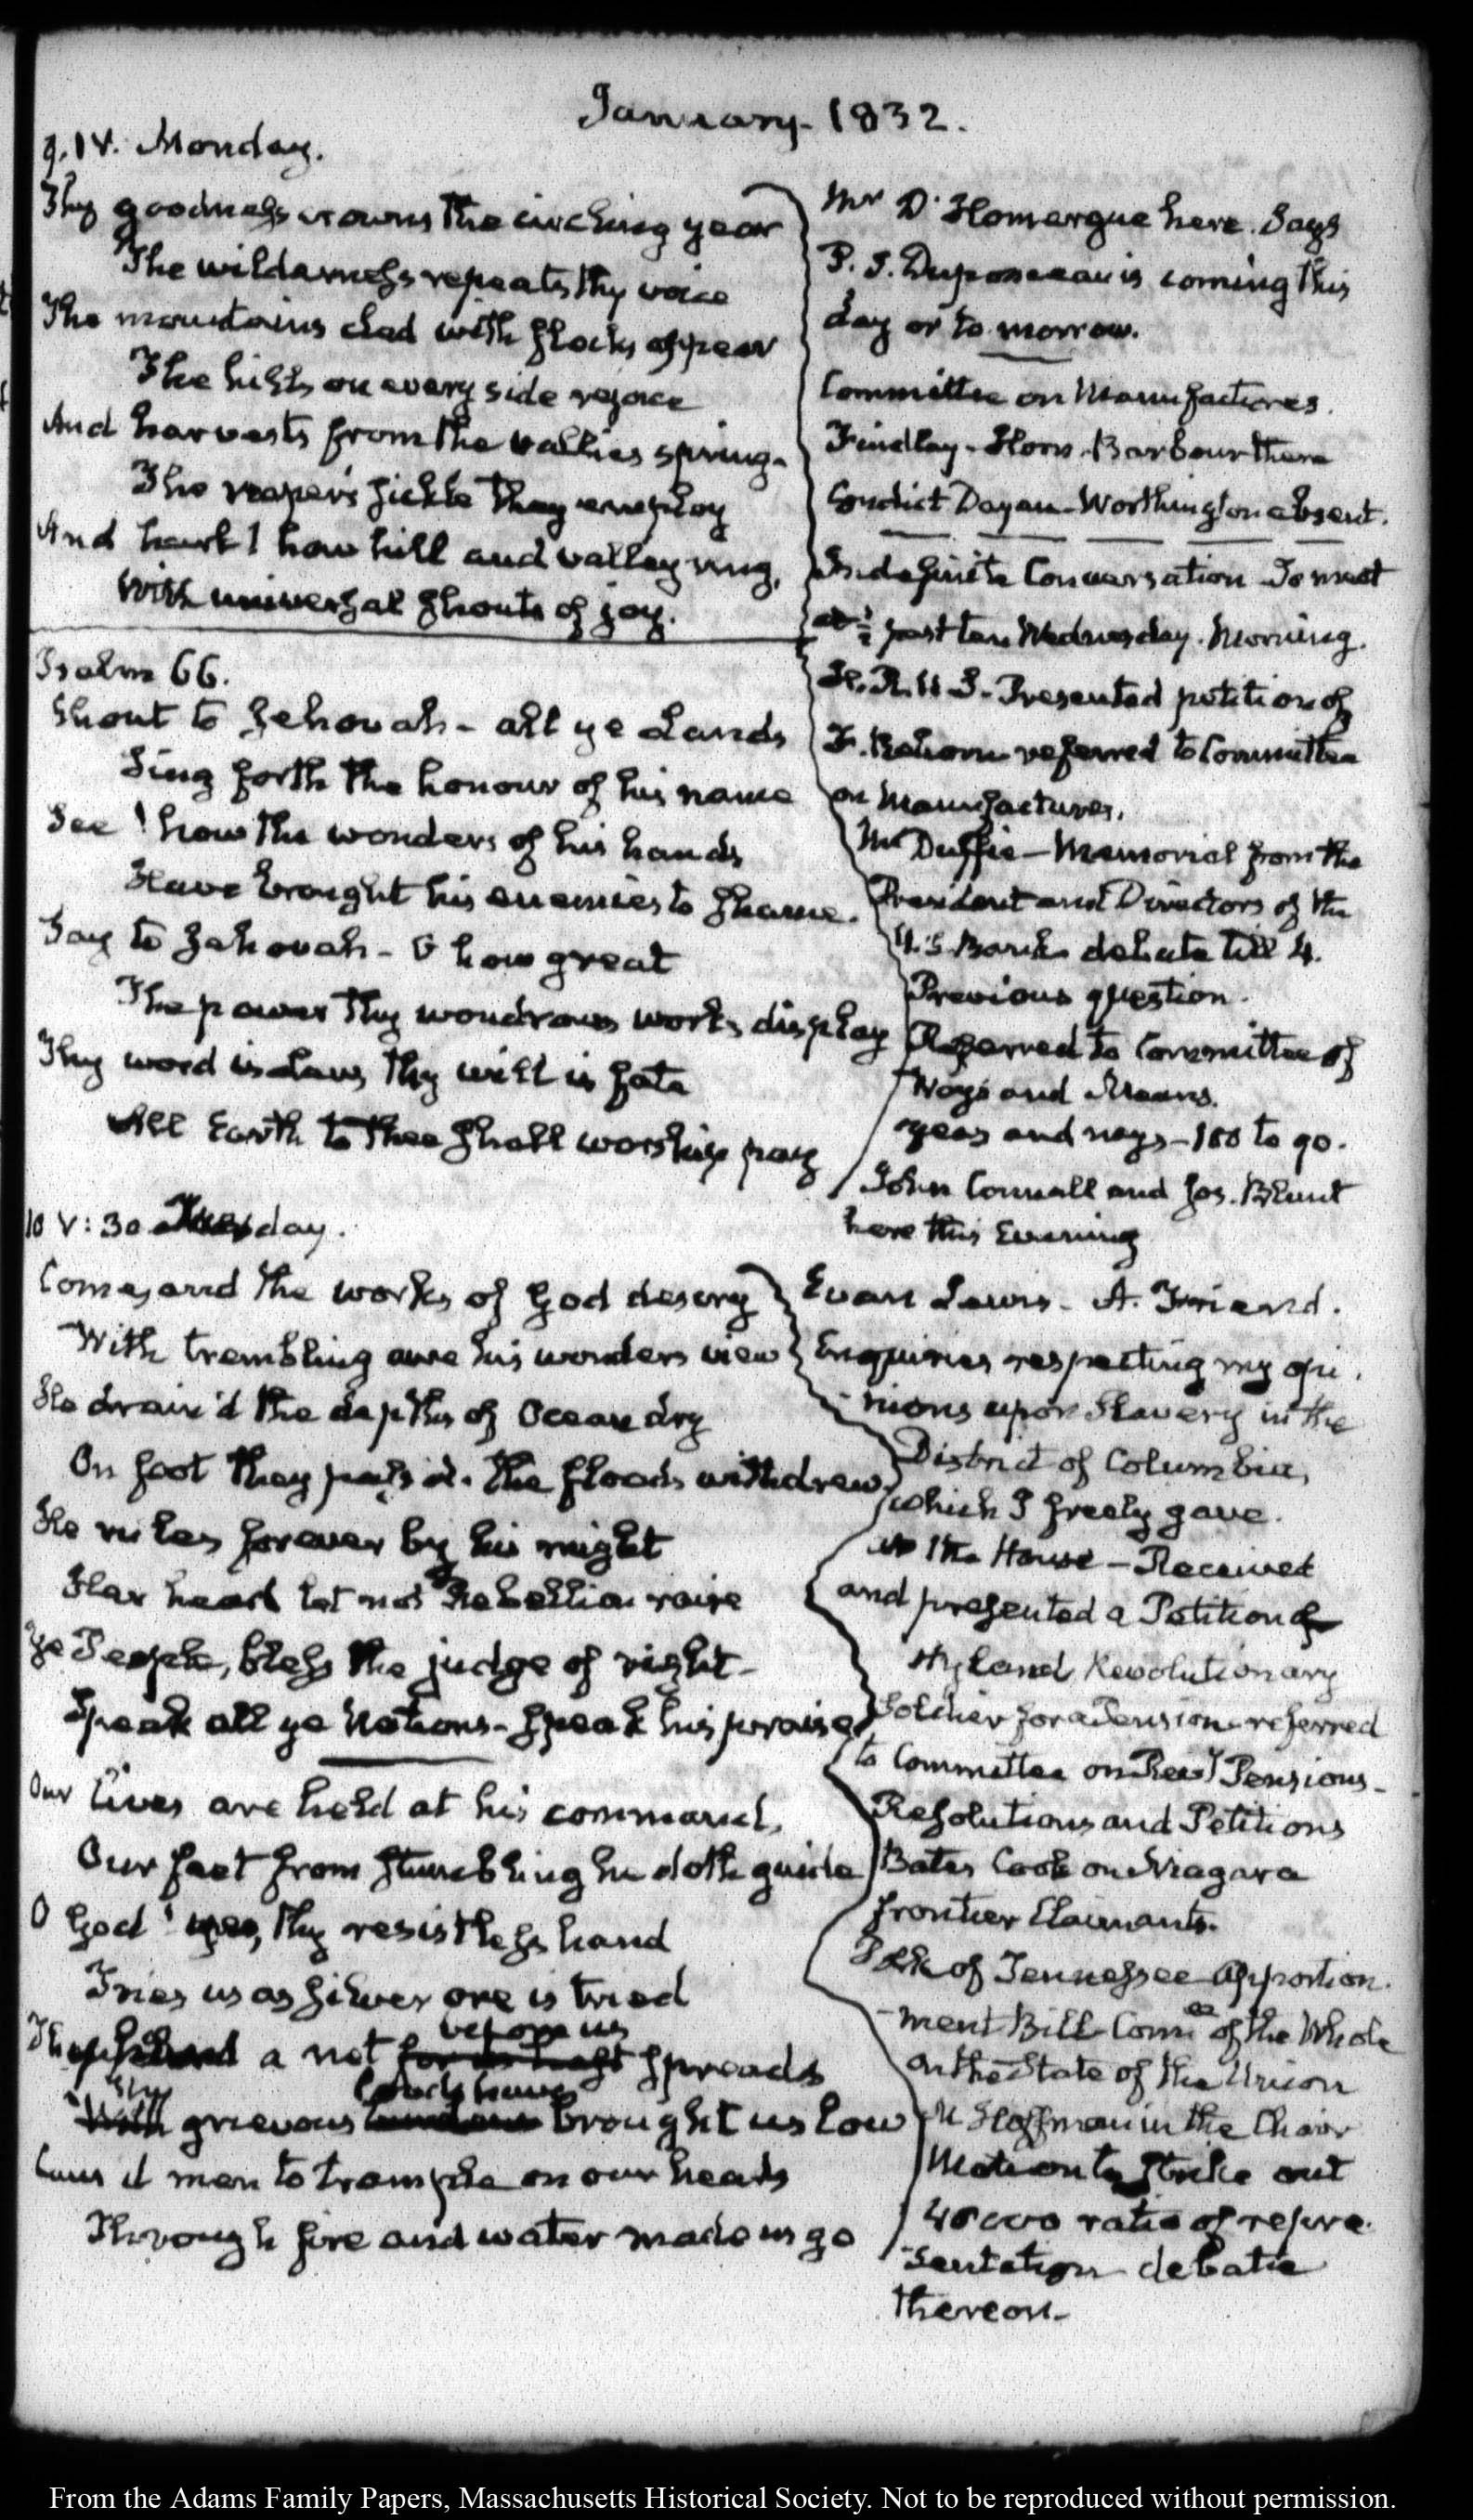 January 1832.
9. IV. Monday.
Thy goodness crowns the circling year
The wilderness repeats thy voice
The mountains clad with flocks appear
The hills on every side rejoice
And harvests from the vallies spring.
The reaper's sickle they employ
And hark! how hill and valley ring,
With universal shouts of joy.
Psalm 66.
Shout to Jehovah - all ye Lands
Sing forth the honour of his name
See! how the wonders of his hands
Have brought his enemies to shame.
Say to Jehovah - O how great
The power thy wondrous works display
Thy word is Law, thy will is fate
All Earth to thee shall worship pay
Mr D'Homergue here. Says
P. S. Duponceau is coming this
day or to-morrow.
Committee on Manufactures.
Findlay - Horn - Barbour there
Condict Dayan - Worthington absent.
Indefinite Conversation To meet
at ½ past ten Wednesday Morning.
H. R. U S - Presented petition of
F. referred to Committee
on Manufactures.
McDuffie - Memorial from the
President and Directors of the
U. S. Bank debate till 4.
Previous question.
Referred to Committee of
Ways and Means.
yeas and nays - 100 to 90.
John Connell and Jos. Blunt
here this Evening
10 V: 30 Tuesday.
Come, and the works of God descry
With trembling awe his wonders view
He drain'd the depths of Ocean dry
On foot they pass'd. the floods withdrew
He rules forever by his might
Her head let not Rebellion raise
Ye People, bless the judge of right -
Speak all ye Nations - speak his praise
Our lives are held at his command,
Our feet from stumbling he doth guide
O God! yes, thy resistless hand
Tries us as silver ore is tried
Thy hand a net before us spreads
Thy grievous loads have brought us low
Caus'd men to trample on our heads
Through fire and water made us go
Evan Lewis - A. Friend.
Enquiries respecting my opi-
nions upon Slavery in the
District of Columbia,
which I freely gave.
At the House - Received
and presented a Petition of
Hyland Revolutionary
Soldier for a Pension - referred
to Committee on Revy Pensions -
Resolutions and Petitions
Bates Cook on Niagara
frontier Claimants.
Polk of Tennessee Apportion-
ment Bill Comee of the Whole
on the State of the Union
M Hoffman in the Chair
Motion to strike out
48000 ratio of repre-
sentation debate
thereon -
From the Adams Family Papers, Massachusetts Historical Society. Not to be reproduced without permission.